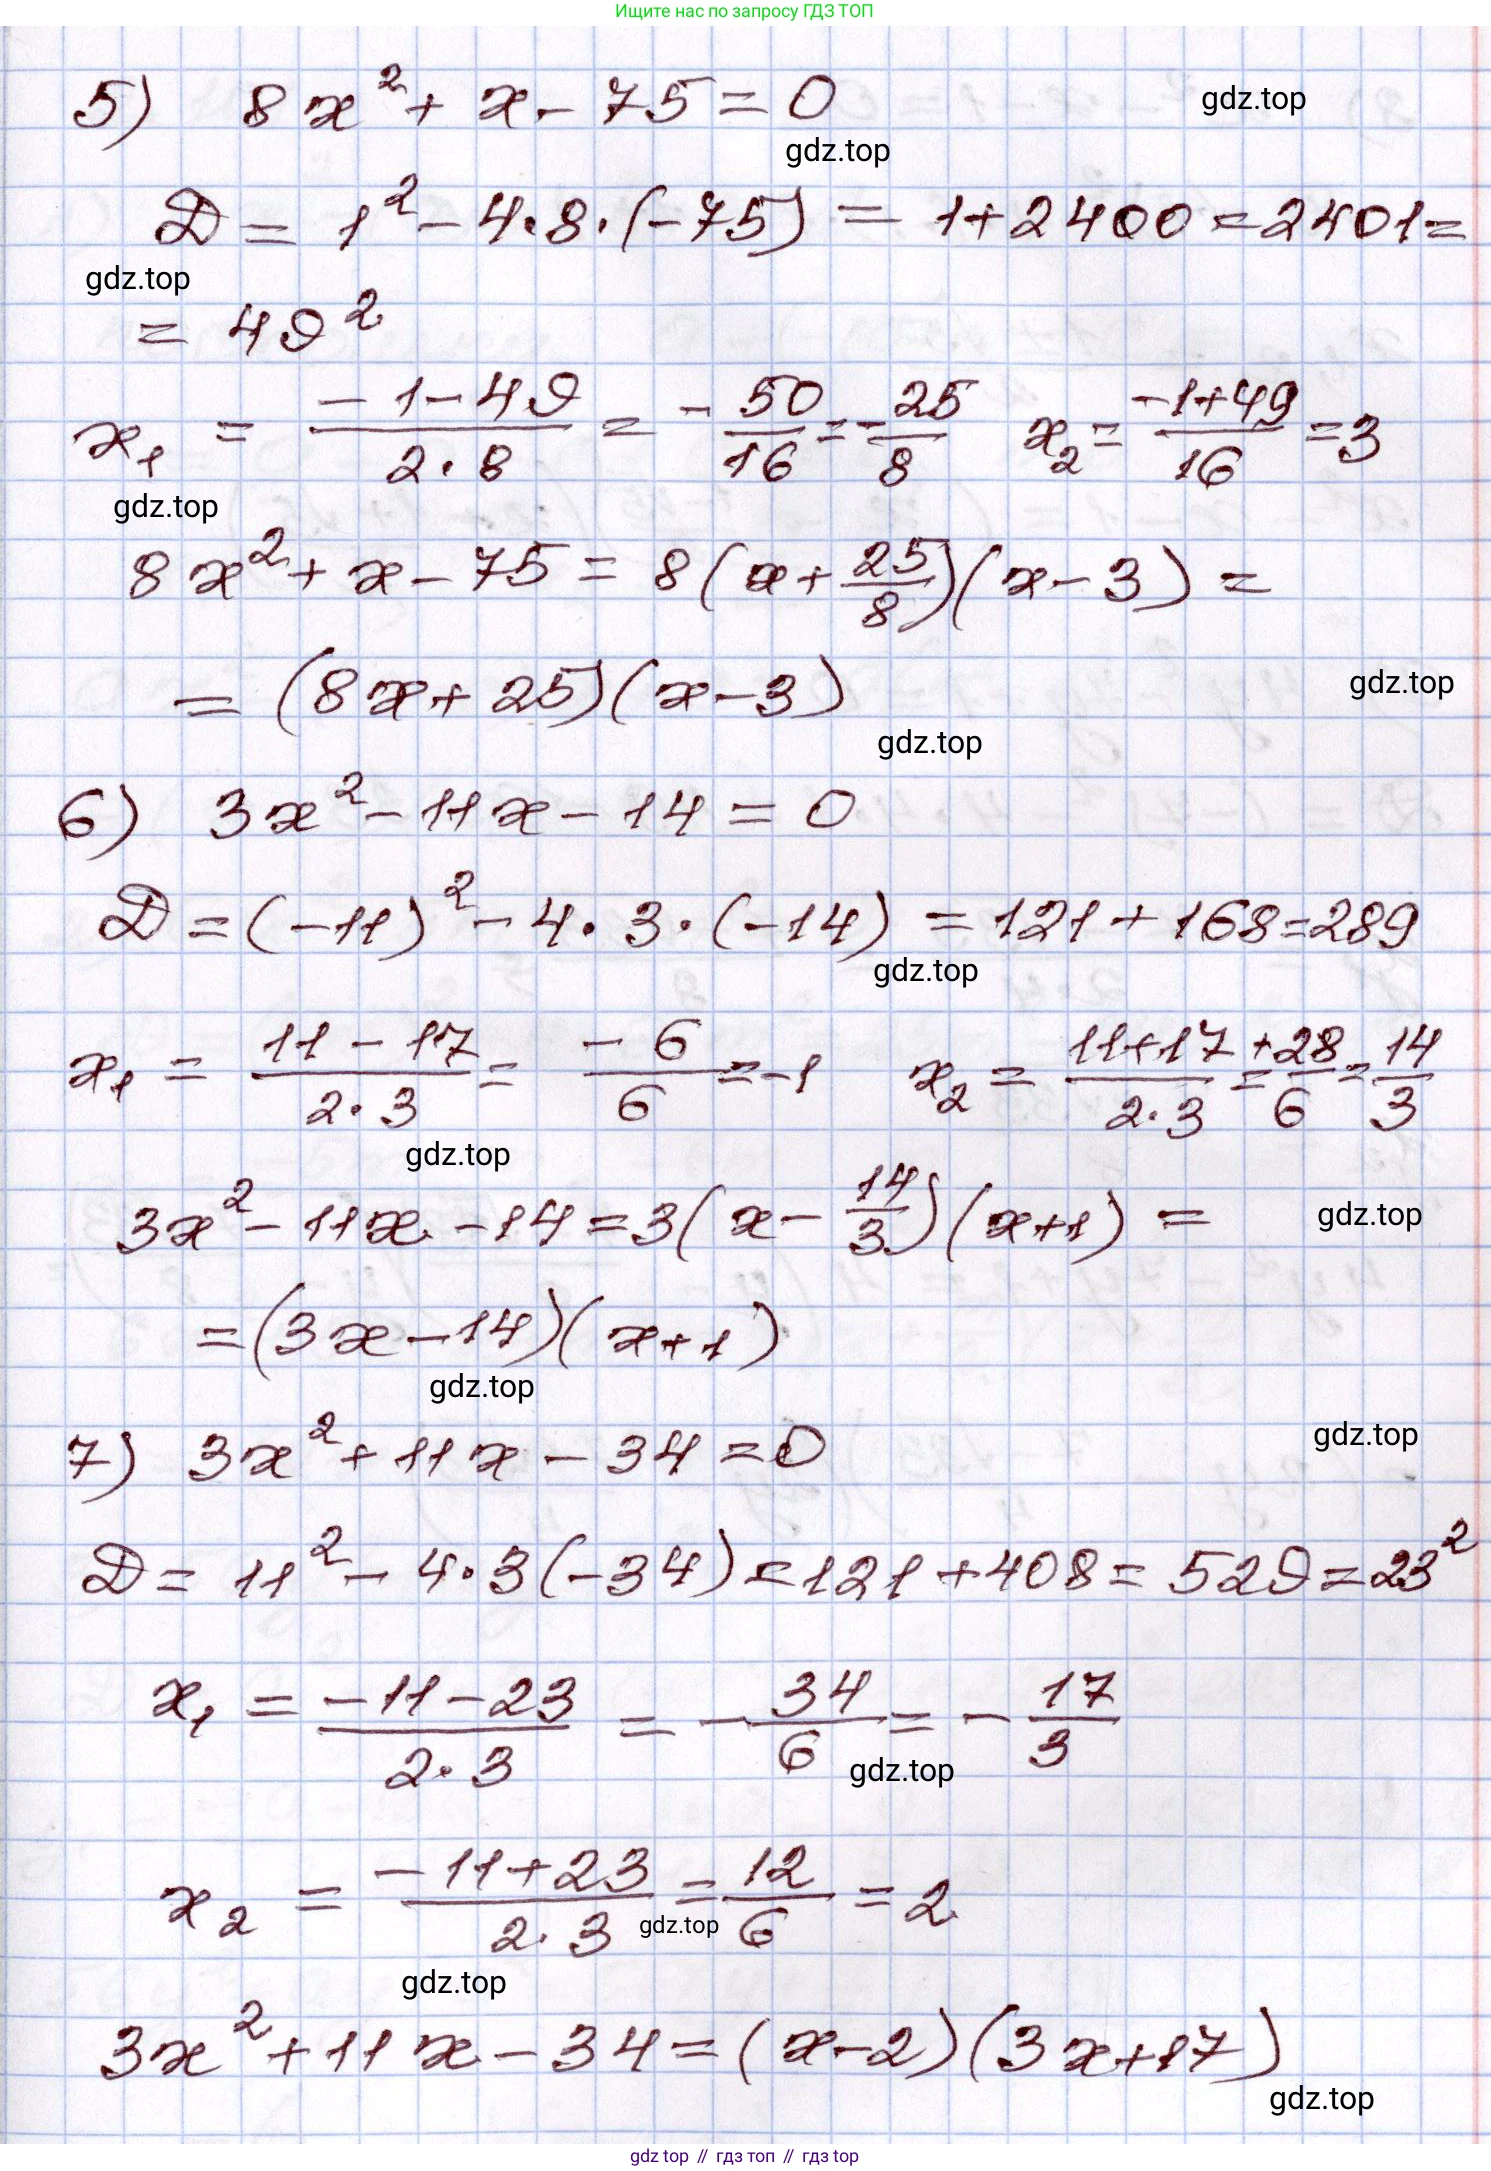 Ищите нас по запросу ГДЗ ТОП
5) 8x² + x - 75 = 0
gdz.top
gdz.top
D = 1² - 4·8·(-75) = 1+2400 = 2401 =
gdz.top
= 49²
x₁ = (-1-49)/(2·8) = -50/16 = -25/8 x₂ = (-1+49)/16 = 3
gdz.top
8x² + x - 75 = 8(x + 25/8)(x - 3) =
= (8x + 25)(x - 3)
gdz.top
gdz.top
6) 3x² - 11x - 14 = 0
D = (-11)² - 4·3·(-14) = 121 + 168 = 289
gdz.top
x₁ = (11 - 17)/(2·3) = -6/6 = -1 x₂ = (11+17)/(2·3) = +28/6 = 14/3
gdz.top
3x² - 11x - 14 = 3(x - 14/3)(x+1) =
gdz.top
= (3x - 14)(x+1)
gdz.top
7) 3x² + 11x - 34 = 0
gdz.top
D = 11² - 4·3(-34) = 121 + 408 = 529 = 23²
x₁ = (-11-23)/(2·3) = -34/6 = -17/3
gdz.top
x₂ = (-11+23)/(2·3) = 12/6 = 2
gdz.top
gdz.top
3x² + 11x - 34 = (x-2)(3x+17)
gdz.top
gdz top // гдз топ // гдз top